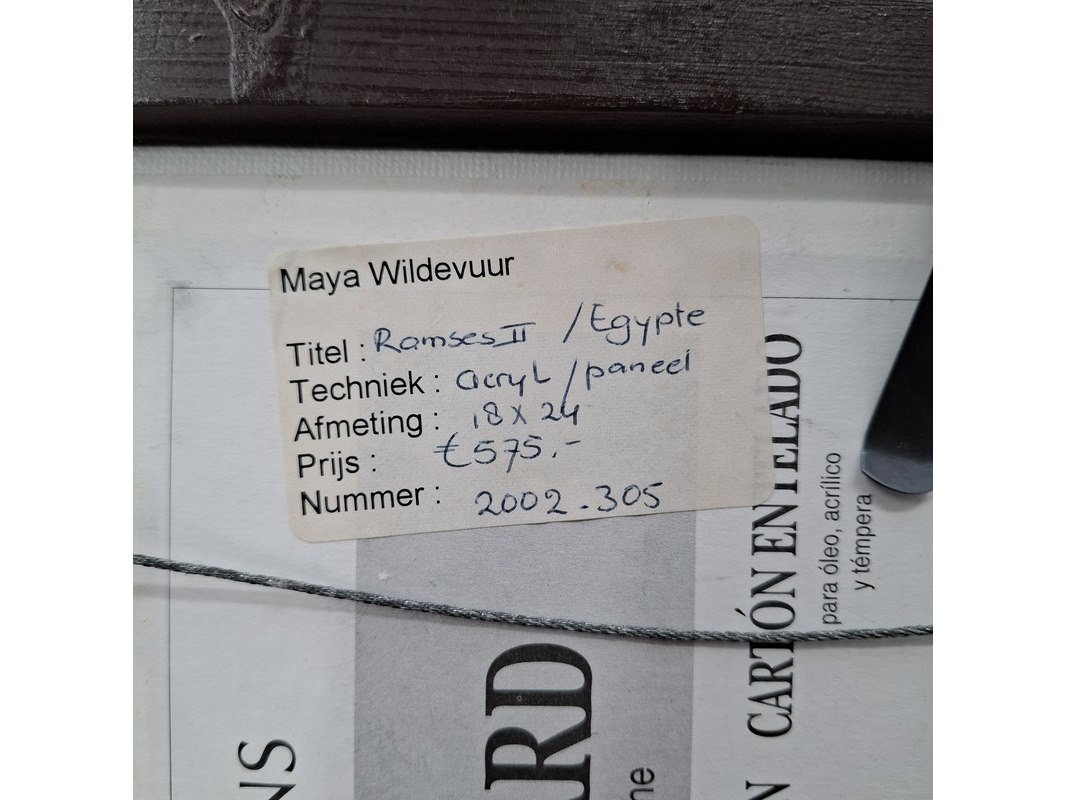 Maya Wildevuur
Titel : Ramses II / Egypte
Techniek : acryl / paneel
Afmeting : 18 x 24
Prijs : € 575.-
Nummer : 2002.305
CARTÓN ENTELADO
para óleo, acrílico
y témpera